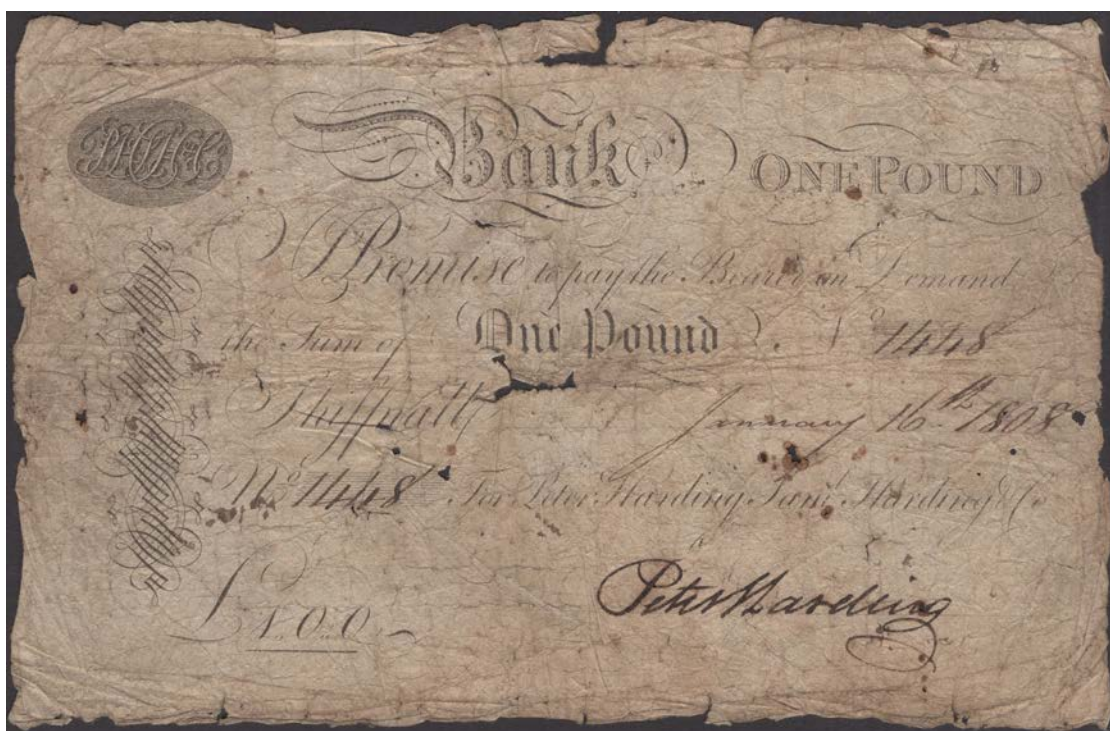 Bank ONE POUND
I Promise to pay the Bearer on Demand
the Sum of One Pound No 1448
Shiffnall January 16th 1808
No 1448 For Peter Harding Saml Harding & Co
£ 1.0.0
Peter Harding